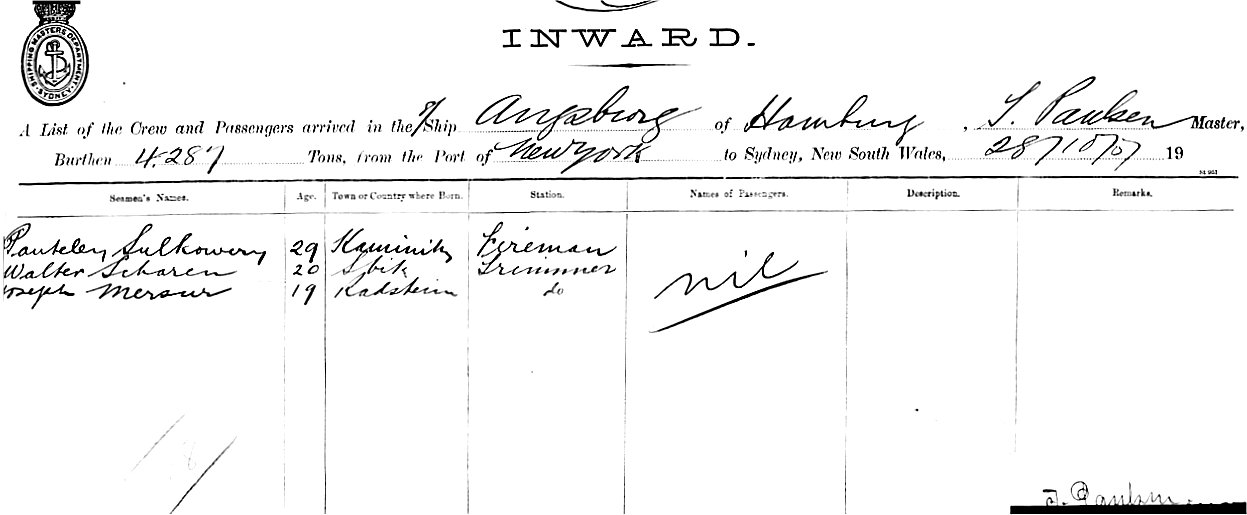 SHIPPING MASTERS DEPARTMENT · SYDNEY ·
INWARD.
A List of the Crew and Passengers arrived in the S/Ship Augsburg of Hamburg, T. Paulsen Master,
Burthen 4287 Tons, from the Port of New York to Sydney, New South Wales, 28/10/07 19
Seamen's Names. Age. Town or Country where Born. Station. Names of Passengers. Description. Remarks.
Panteley 29 Kaminitz Fireman
Walter Scharen 20 Trimmer nil
Joseph Mersur 19 Radstein do
Paulsen